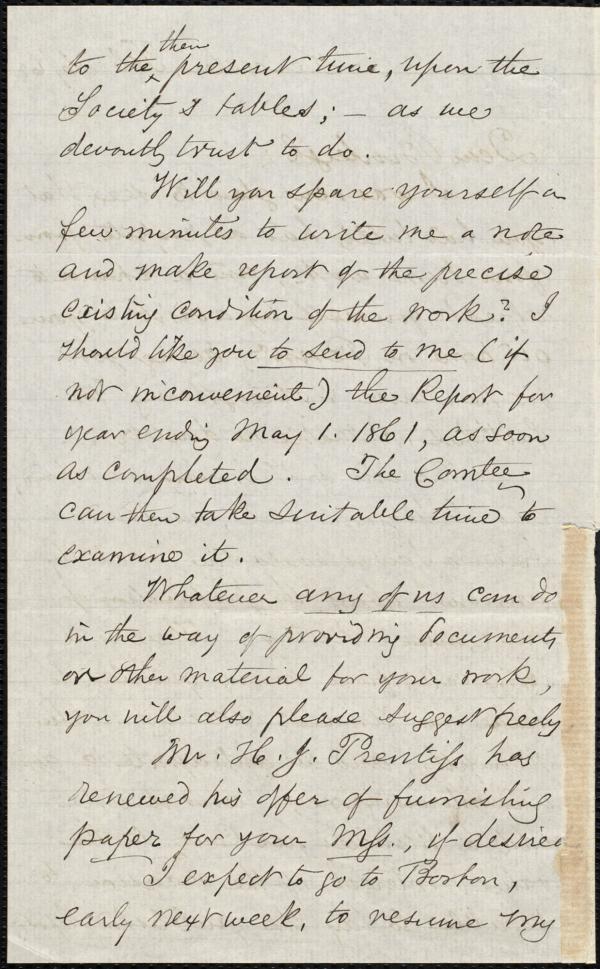 to the then present time, upon the
Society's tables; – as we
devoutly trust to do.
Will you spare yourself a
few minutes to write me a note
and make report of the precise
existing condition of the work? I
should like you to send to me (if
not inconvenient) the Report for
year ending May 1. 1861, as soon
as completed. The Comtee
can then take suitable time to
examine it.
Whatever any of us can do
in the way of providing documents
or other material for your work,
you will also please suggest freely
Mr. H. J. Prentiss has
renewed his offer of furnishing
paper for your Mss., if desired
I expect to go to Boston,
early next week, to resume my